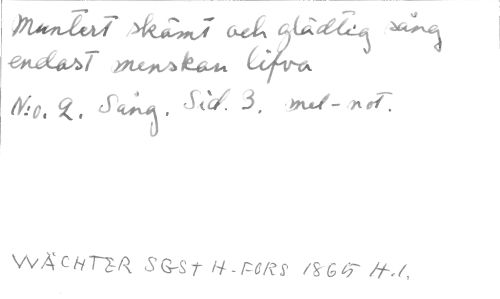 Muntert skämt och glädtig sång
endast menskan lifva
N:o. 2. Sång. Sid. 3. mel-not.
WÄCHTER SGST H-FORS 1865 H.1.